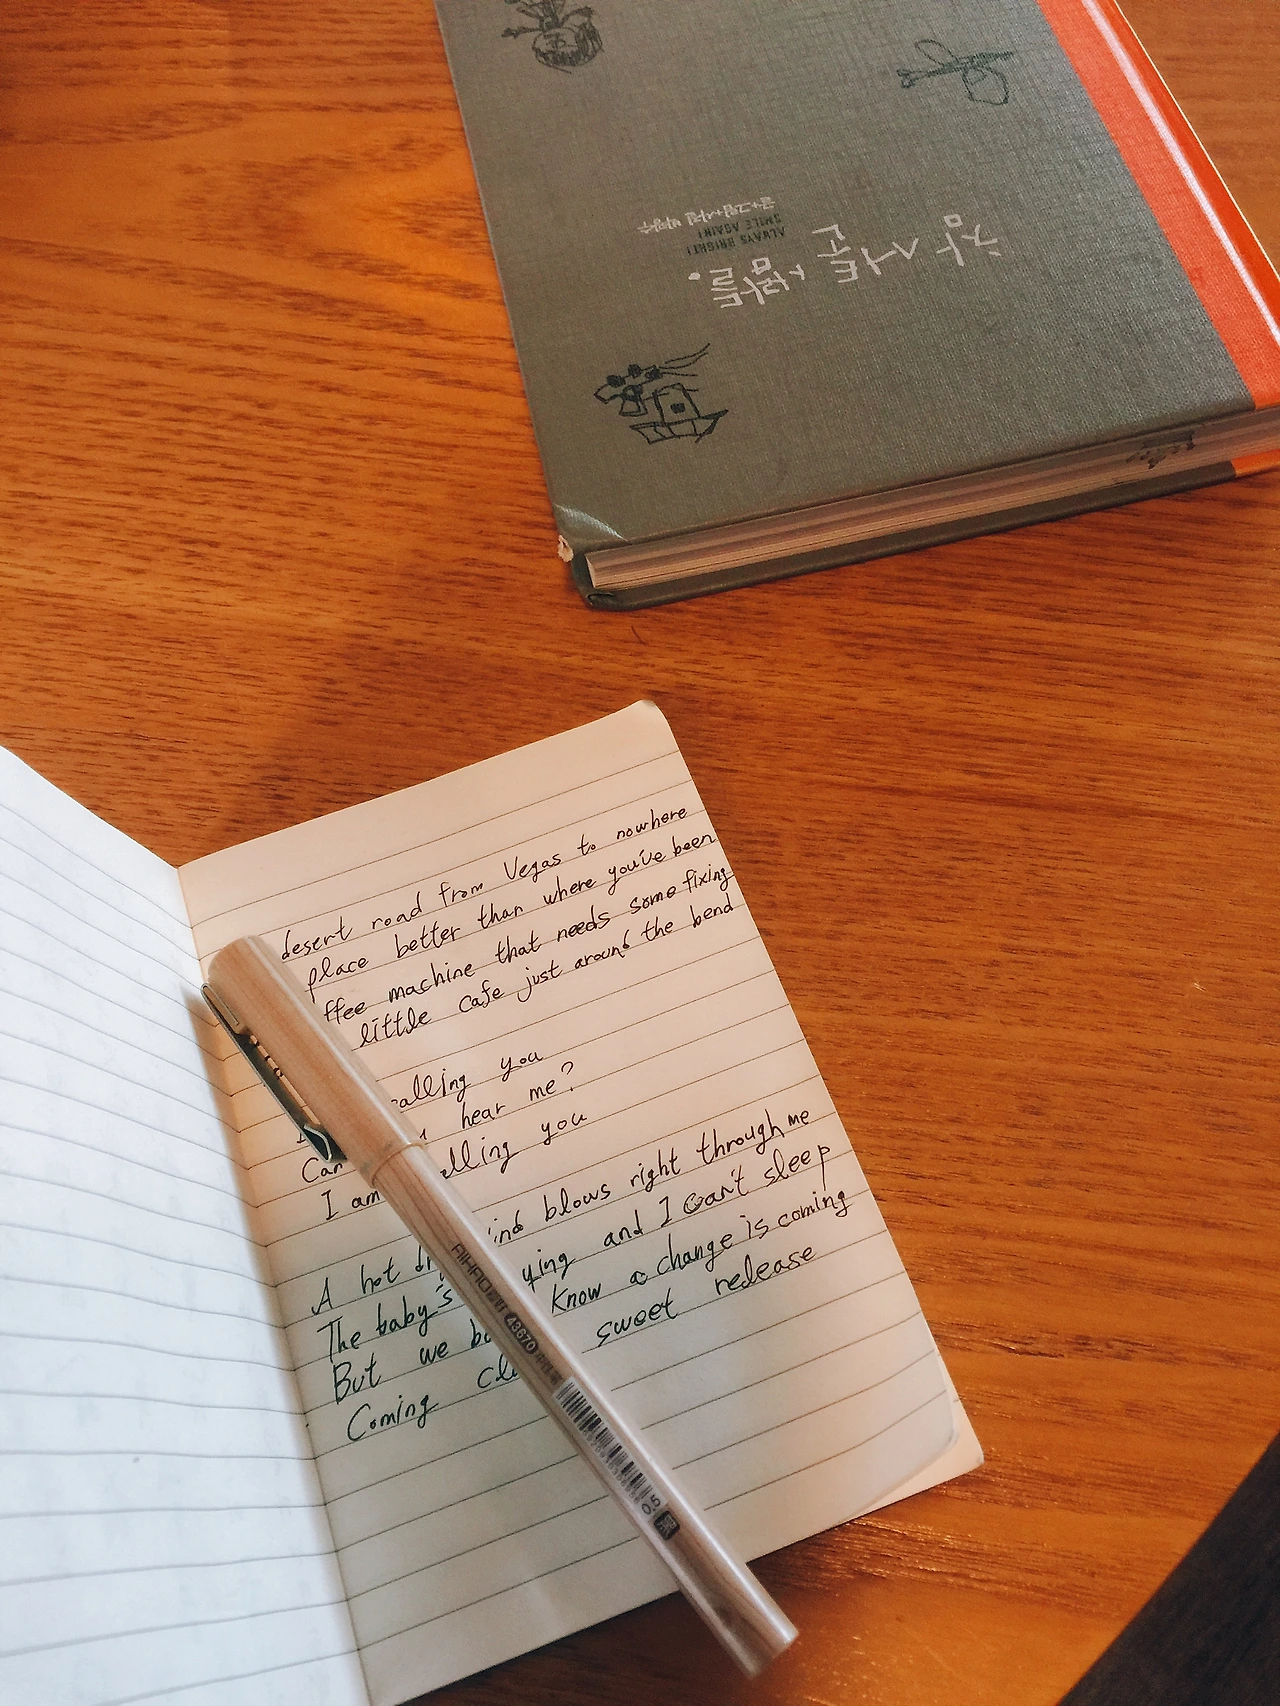 참 서툰 사람들.
ALWAYS BRIGHT!
SMILE AGAIN!
글+그림+사진 박광수
desert road from Vegas to nowhere
place better than where you've been
ffee machine that needs some fixing
little cafe just around the bend
alling you
Can hear me?
I am lling you
A hot dr ind blows right through me
The baby's ying and I can't sleep
But we bo know a change is coming
Coming clo sweet release
AIHAO 爱好 43670
0.5 黑